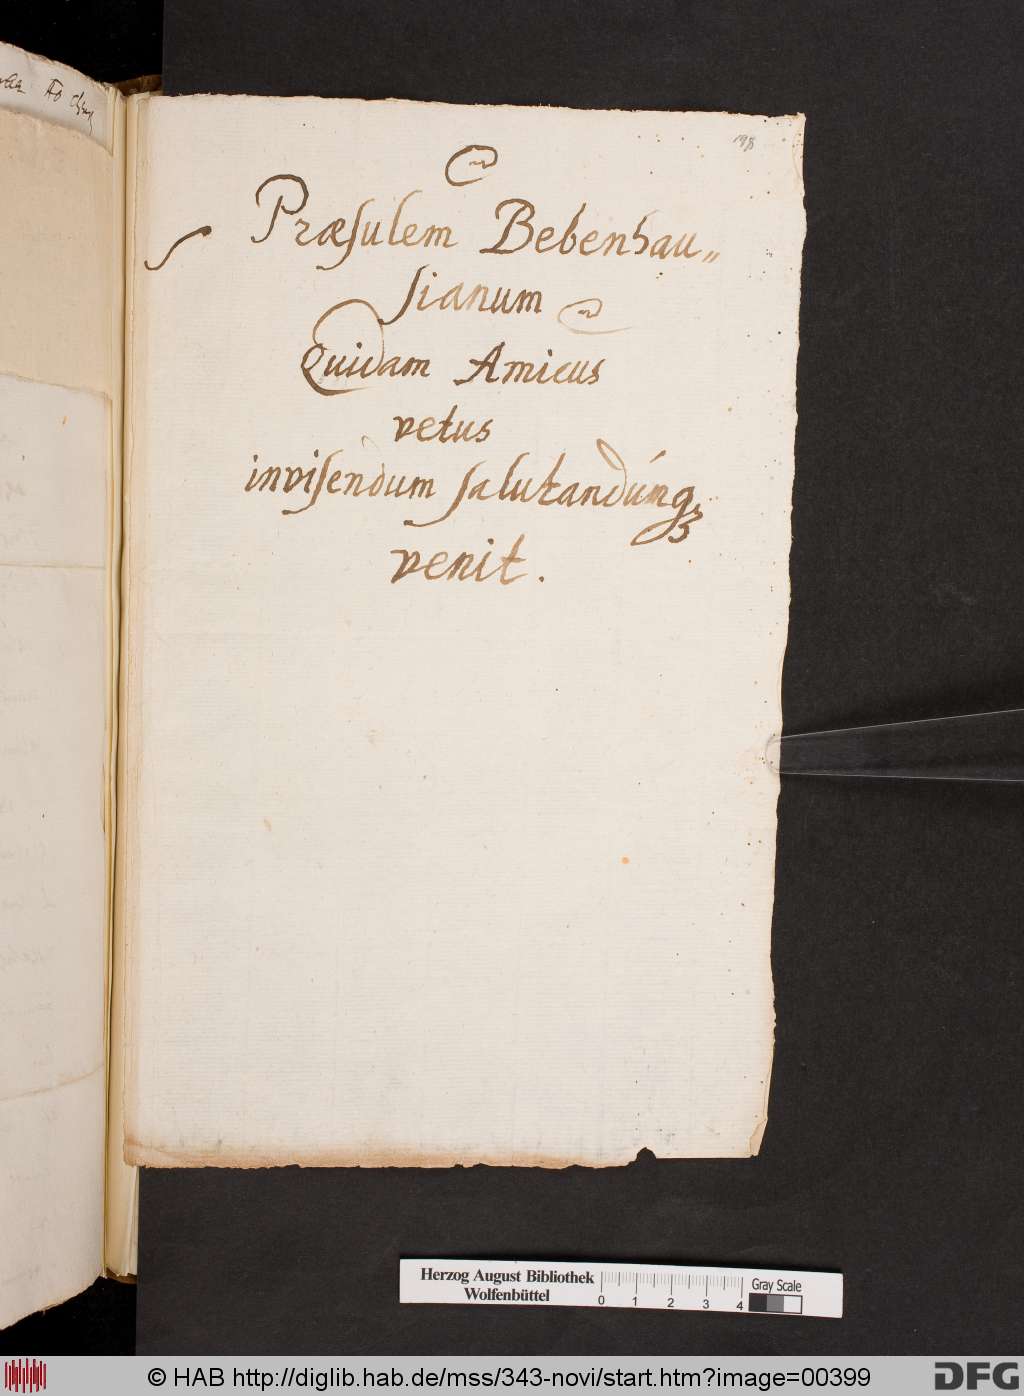 198
Præsulem Bebenhau„
sianum
Quidam Amicus
vetus
invisendum salutandúnq₃
venit.
Herzog August Bibliothek
Wolfenbüttel
0 1 2 3 4
Gray Scale
© HAB http://diglib.hab.de/mss/343-novi/start.htm?image=00399
DFG